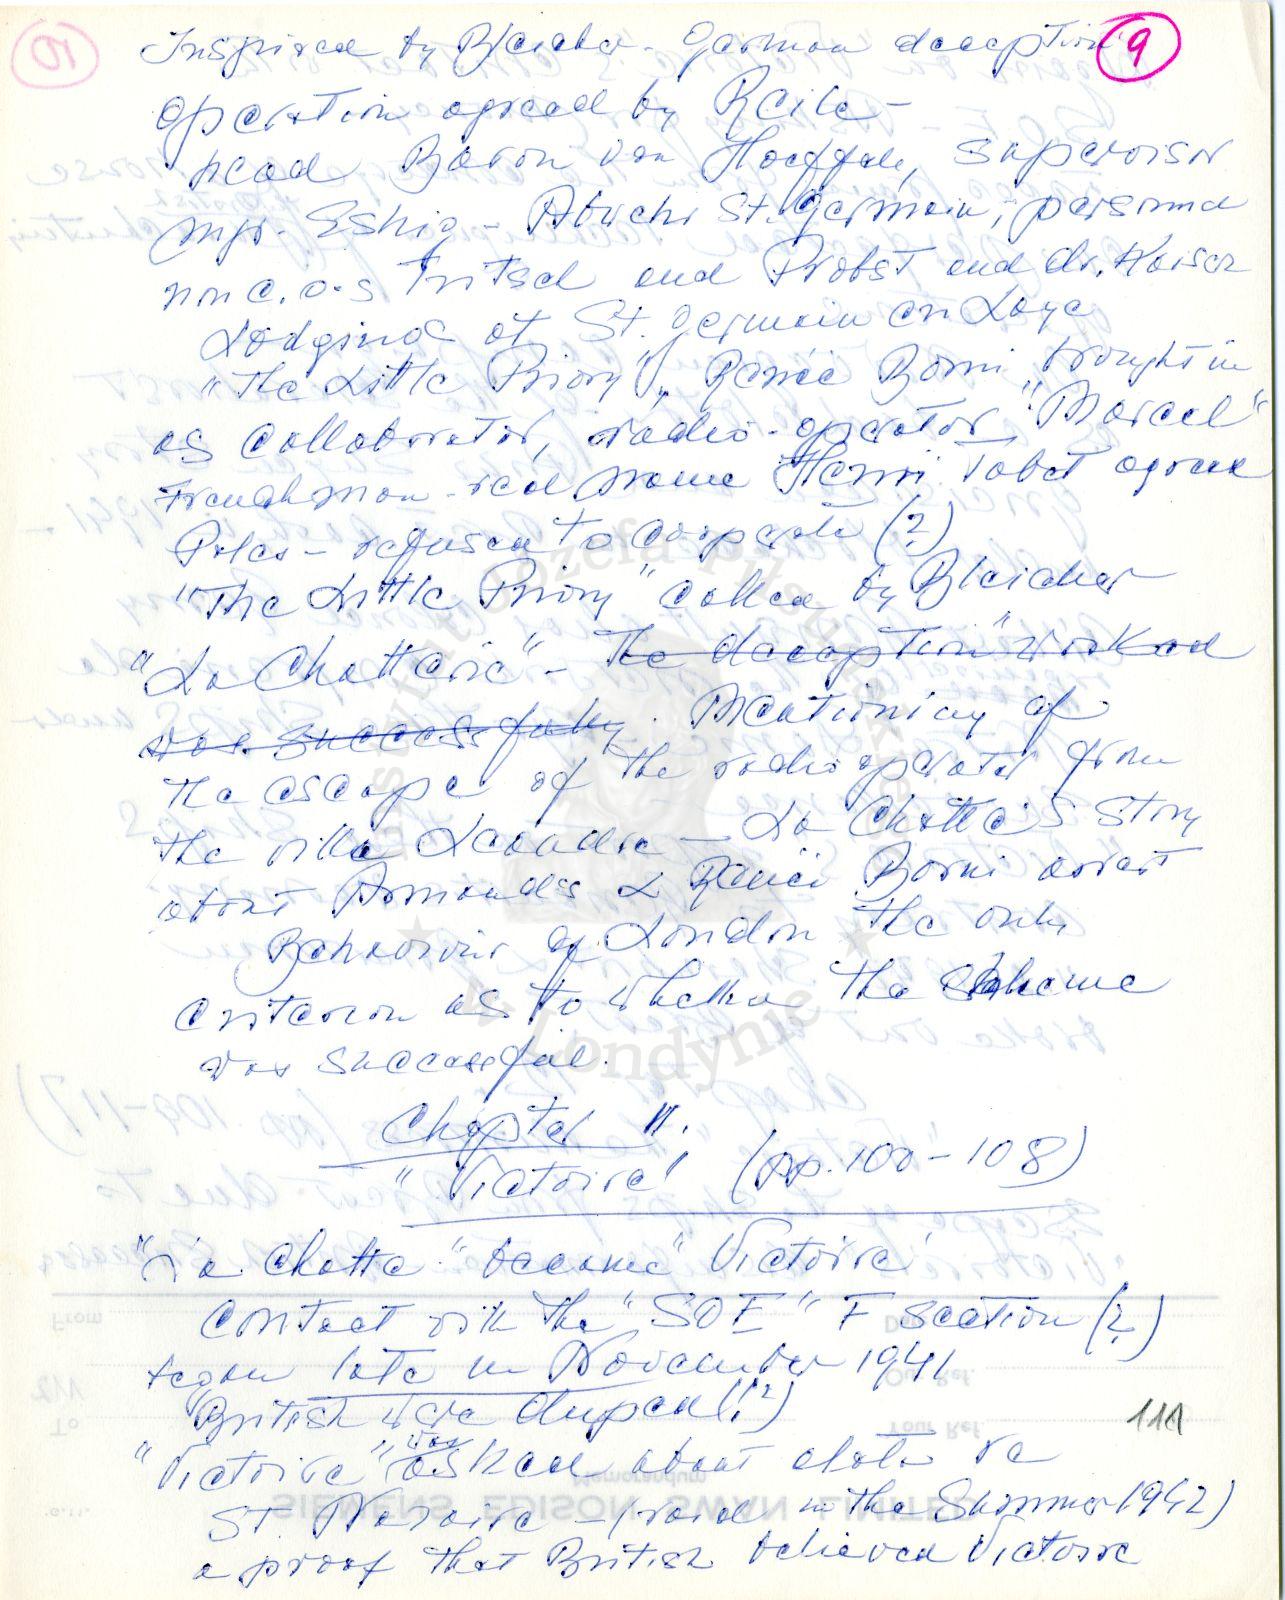 9
10
Inspired by Bleicher - German deception
operation agreed by Reile -
head Baron von Hoeffele, supervisor
mjr. Eshig - Abwehr St. Germain, personnel
non c.o.s Tritsch and Probst and dr. Kaiser
Lodging at St. Germain en Laye
"The Little Priory", Renée Borni brought in
as collaborator, radio-operator "Marcel"
Frenchman - real name Henri Tabet agreed
Poles - refused to cooperate (?)
"The Little Priory" called by Bleicher
"La Chatterie" - The deception worked
was successfully. Mentioning of
the escape of the radio operator from
the villa Leandre - La Chatte's story
about Armand's & Renée Borni arrest
Behaviour of London the only
criterion as to whether the scheme
was successful.
Chapter 11.
"Victoire" (pp. 100-108)
"La Chatte" became "Victoire"
Contact with the "SOE" F section (?)
began late in November 1941
British were duped (!?)
"Victoire" was asked about data re
St. Nazaire - (raid in the Summer 1942)
a proof that British believed Victoire
111
Instytut Józefa Piłsudskiego
w Londynie
From
To
Our Ref.
Your Ref.
Memorandum
SIEMENS EDISON SWAN LIMITED
112